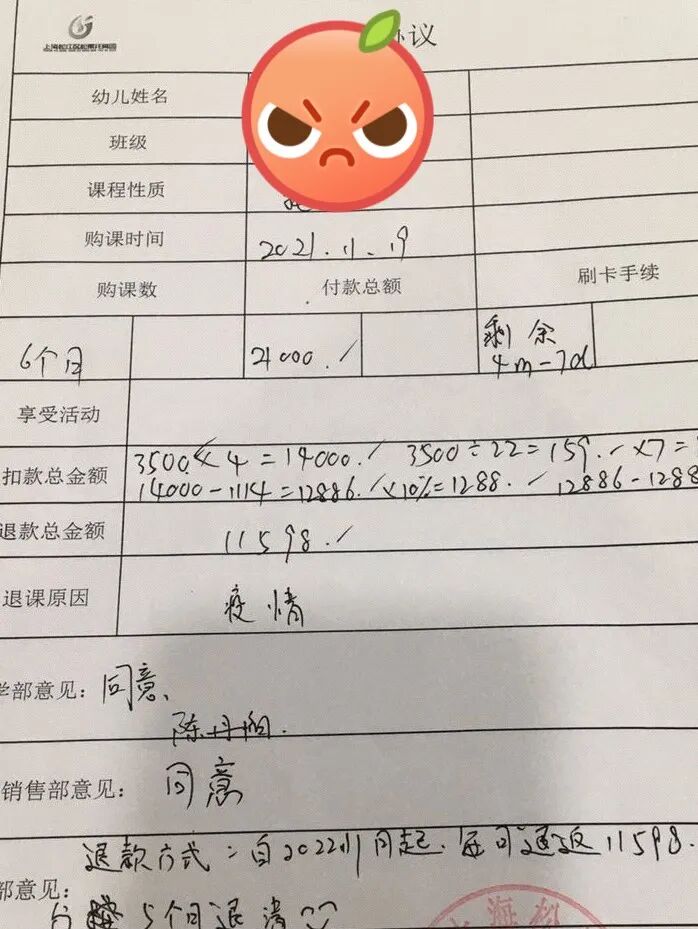 协议
幼儿姓名
班级
课程性质
购课时间 2021.11.19
购课数 付款总额 刷卡手续
6个月 21000./ 剩余
4m-7d
享受活动
扣款总金额 3500×4=14000./ 3500÷22=159./×7=
14000-1114=12886./×10%=1288./ 12886-1288
退款总金额 11598./
退课原因 疫情
学部意见: 同意、
销售部意见: 同意
退款方式:自2022年 月起.每 11598.
部意见:
分 5个 退清
上海松